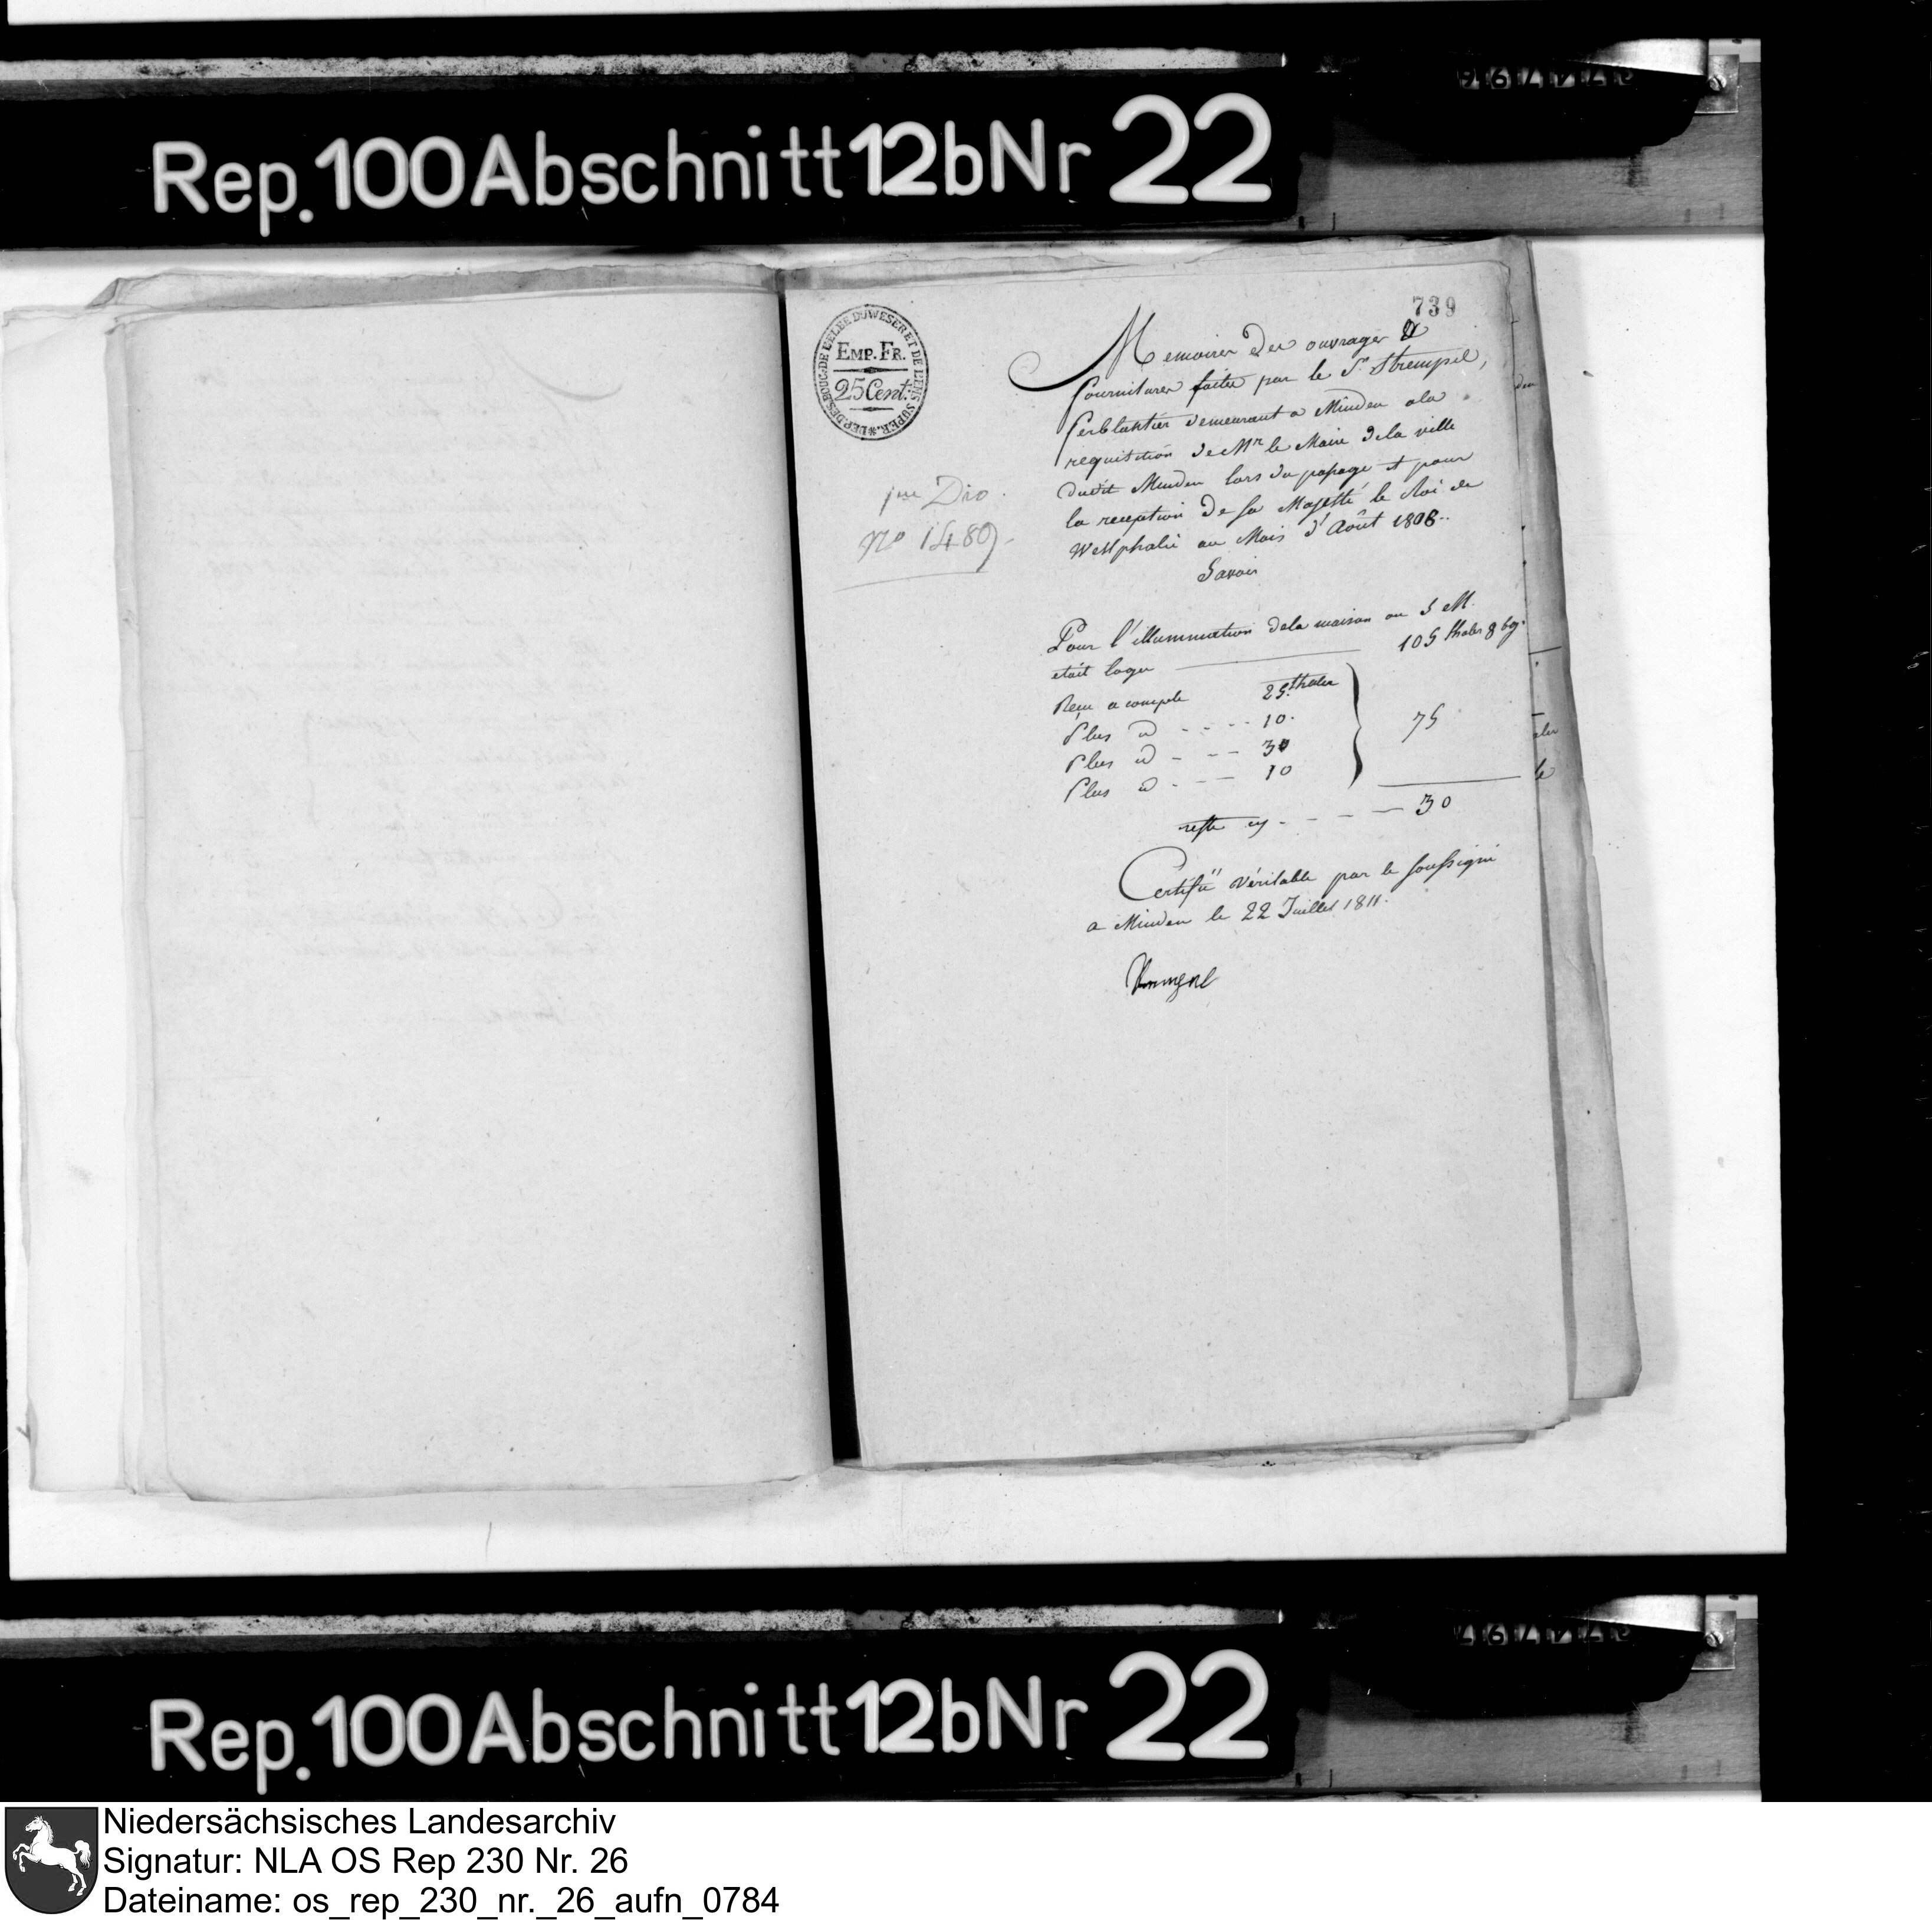 Rep. 100 Abschnitt 12b Nr 22
739
DEP. DES BOUC. DE L'ELBE DU WESER ET DE L'EMS SUPER.
EMP. FR.
25 Cent.
Memoires des ouvrages &
fournitures faites par le Sr Strempel,
ferblantier demeurant a Minden a la
requisition de Mr le Maire de la ville
dudit Minden lors du passage et pour
la reception de sa Majesté le Roi de
Westphalie au Mois d'Août 1808.
Savoir
1me Dio.
No 1489
Pour l'illumination de la maison ou S M.
etait loger 105 thaler 8 bg.
Reçu a compte 25 thaler
Plus d 10.
Plus d 30 75
Plus d 10
reste cy 30
Certifié véritable par le soussigné
a Minden le 22 Juillet 1811.
Rep. 100 Abschnitt 12b Nr 22
Niedersächsisches Landesarchiv
Signatur: NLA OS Rep 230 Nr. 26
Dateiname: os_rep_230_nr._26_aufn_0784